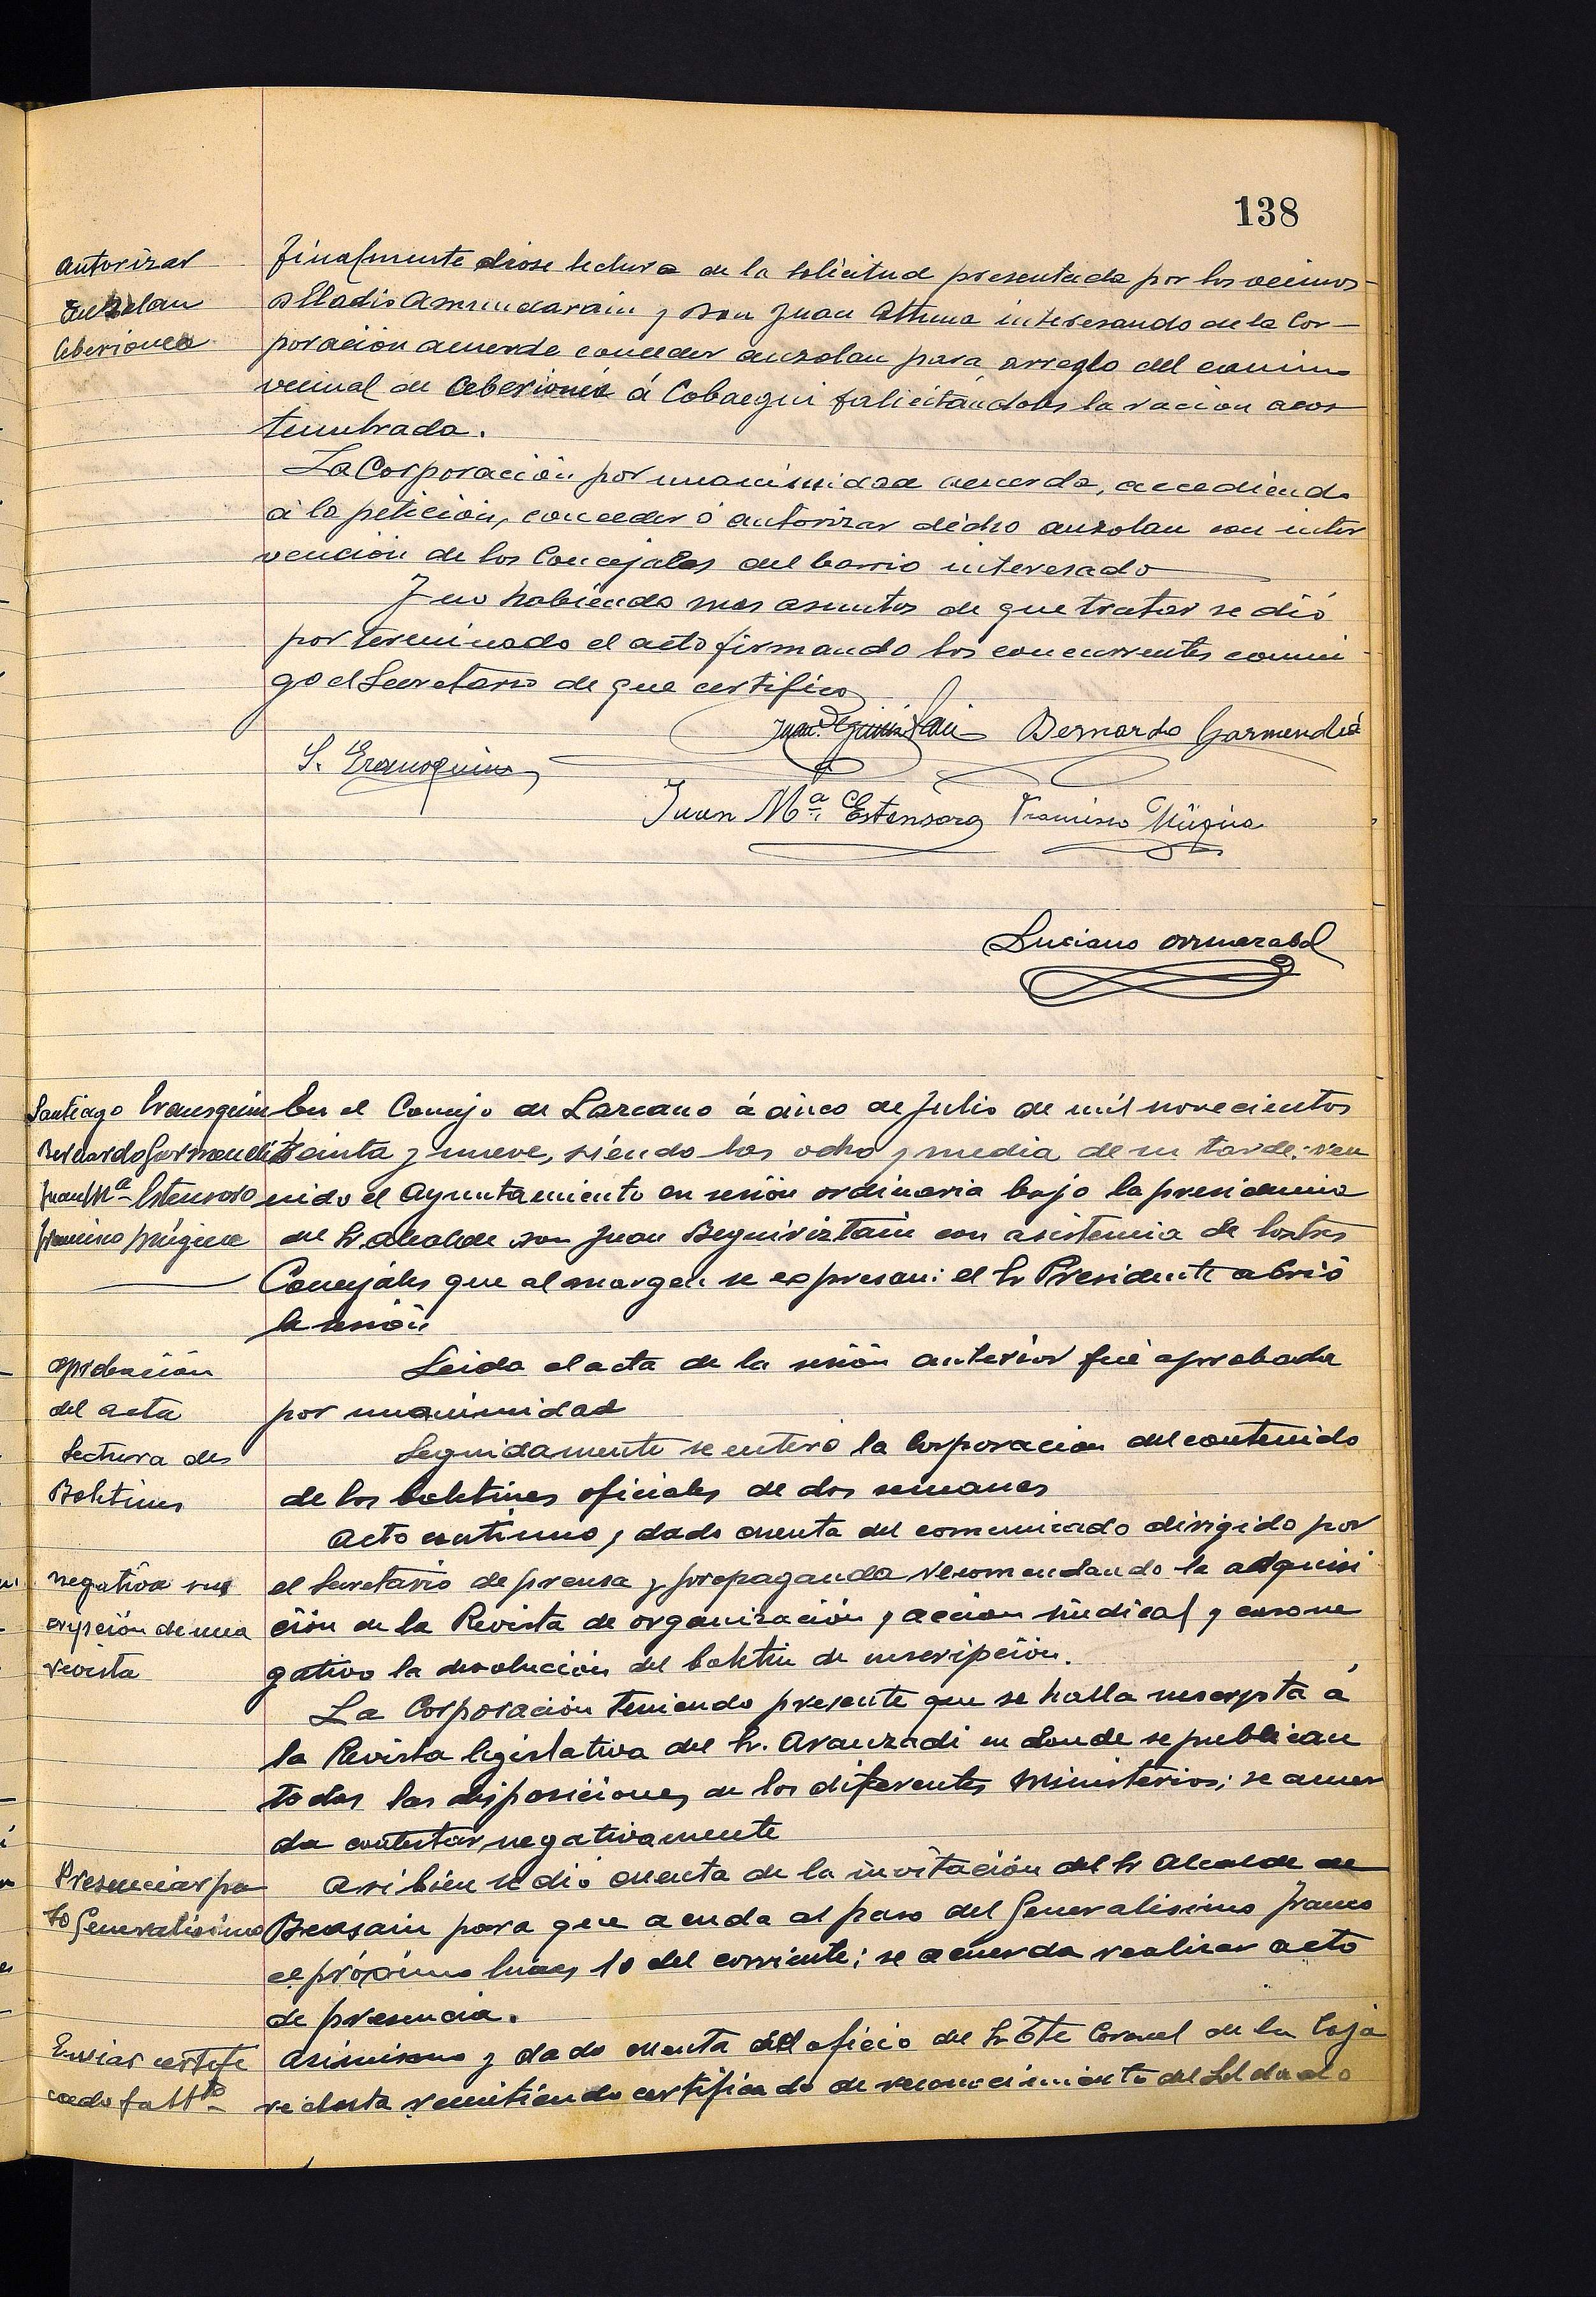 138
autorizar
auzolan
Ceberionea
finalmente diose lectura de la solicitud presentada por los vecinos
D Eladio Amundarain y Don Juan Altuna interesando de la Cor-
poración acuerde conceder auzolan para arreglo del camino
vecinal de Ceberionea á Cobaegui falicitándoles la racion acos
tumbrada.
La Corporación por unanimidad acuerda, accediendo
á la petición, conceder ó autorizar dicho auzolan con inter
vención de los Concejales del barrio interesado
Y no habiendo mas asuntos de que tratar se dió
por terminado el acto firmando los concurrentes conmi
go el Secretario de que certifico
Juan Beguiristain Bernardo Garmendia
S. Erausquin
Juan Mª Estensoro Francisco Múgica
Luciano Ormazabal
Santiago Erausquin
Bernardo Garmendia
Juan Mª Estensoro
Francisco Múgica
En el Concejo de Lazcano á cinco de Julio de mil novecientos
treinta y nueve, siendo las ocho y media de su tarde: reu
nido el Ayuntamiento en sesión ordinaria bajo la presidencia
del Sr Alcalde Don Juan Beguiristain con asistencia de los tres
Concejales que al margen se expresan: el Sr Presidente abrió
la sesión
aprobación
del acta
Leida el acta de la sesión anterior fué aprobada
por unanimidad
Lectura de
Boletines
Seguidamente se enteró la Corporacion del contenido
de los boletines oficiales de dos semanas
negativa sus
cripción de una
revista
Acto continuo, dado cuenta del comunicado dirigido por
el Secretario de prensa y propaganda recomendando la adquisi
ción de la Revista de organización y accion sindical y caso ne
gativo la devolución del boletin de suscripción.
La Corporación teniendo presente que se halla suscrypta á
la Revista legislativa del Sr. Aranzadi en donde se publican
todas las disposiciones de los diferentes Ministerios; se acuer
da contestar negativamente
Presenciar pa
so Generalísimo
Asi bien se dió cuenta de la invitación del Sr Alcalde de
Beasain para que acuda al paso del Generalísimo Franco
el próximo lunes 10 del corriente; se acuerda realizar acto
de presencia.
Enviar certifi
cado
Asimismo y dado cuenta del oficio del Sr Tte Coronel de la Caja
recluta remitiendo certificado de reconocimiento del Soldado